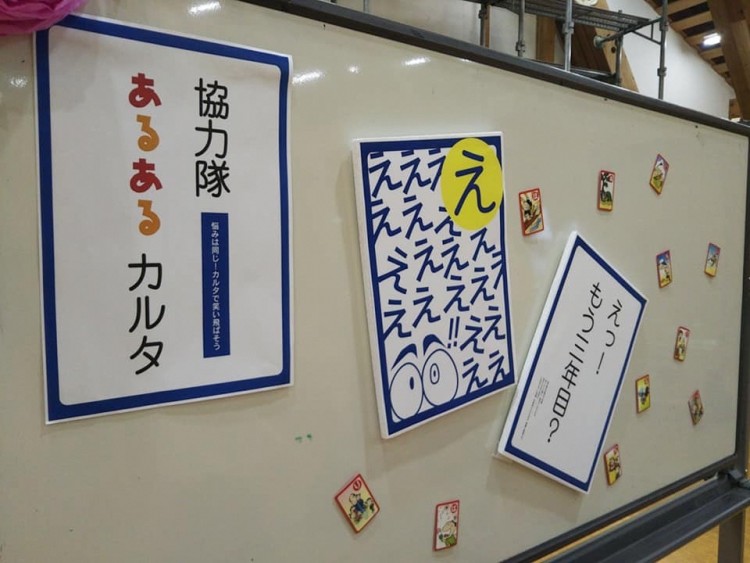 協力隊
あるある
カルタ
悩みは同じ！カルタで笑い飛ばそう
え
え え え
え え え
え え え え
え え え え
え !! え え
え え
えっ！
もう三年目？